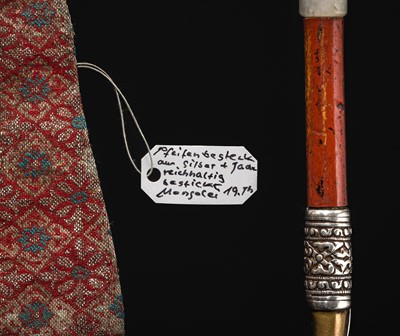 Pfeifenbesteck
aus Silber + Jade
reichhaltig
bestickt
Mongolei 19. Jh